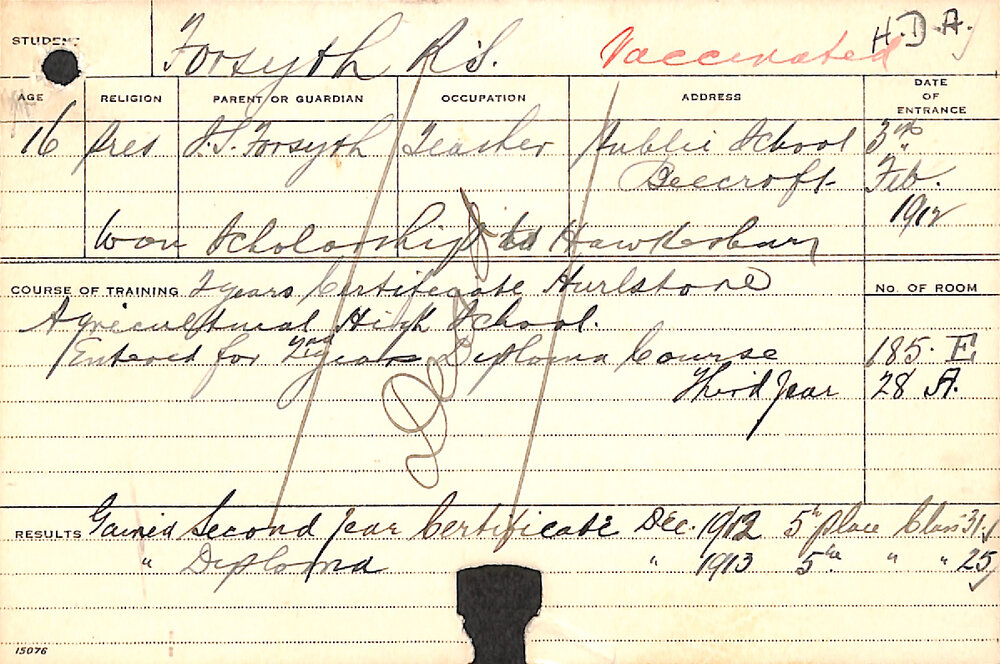 H.D.A.
STUDENT Forsyth R.S. Vaccinated
AGE RELIGION PARENT OR GUARDIAN OCCUPATION ADDRESS DATE OF ENTRANCE
16 Pres J.S. Forsyth Teacher Public School 3rd
Beecroft. Feb.
1912
Won Scholarship to Hawkesbury
COURSE OF TRAINING 2 years Certificate Hurlstone No. OF ROOM
Agricultural High School.
Entered for 2nd years Diploma Course 185. E
Third Year 28 A.
Dead
RESULTS Gained Second Year Certificate Dec. 1912 5th place Class 31.
" Diploma " 1913 5th " " 25
15076